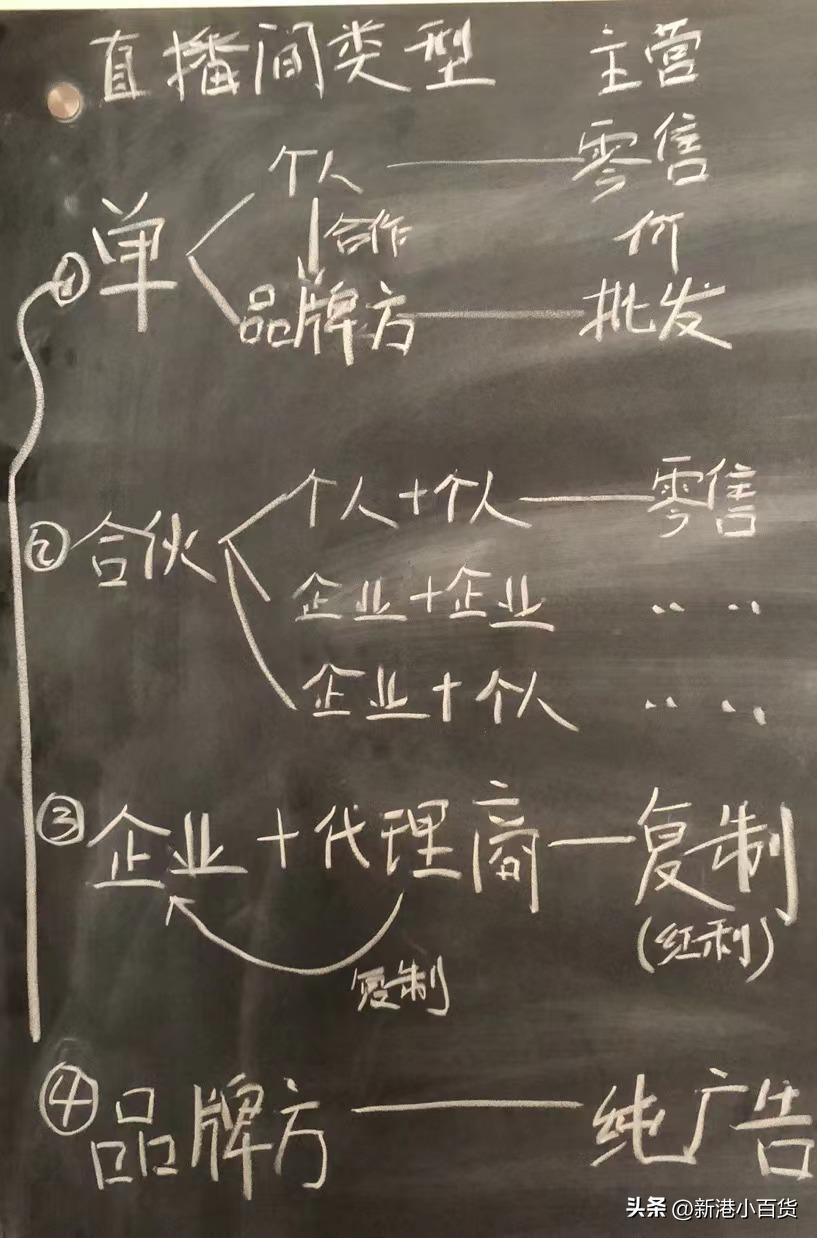 直播间类型 主营
个人 零售
① 单 合作 价
品牌方 批发
个人+个人 零售
② 合伙
企业+企业 〃 〃
企业+个人 〃 〃
③ 企业+代理商 复制
(红利)
复制
④ 品牌方 纯广告
头条 @新港小百货